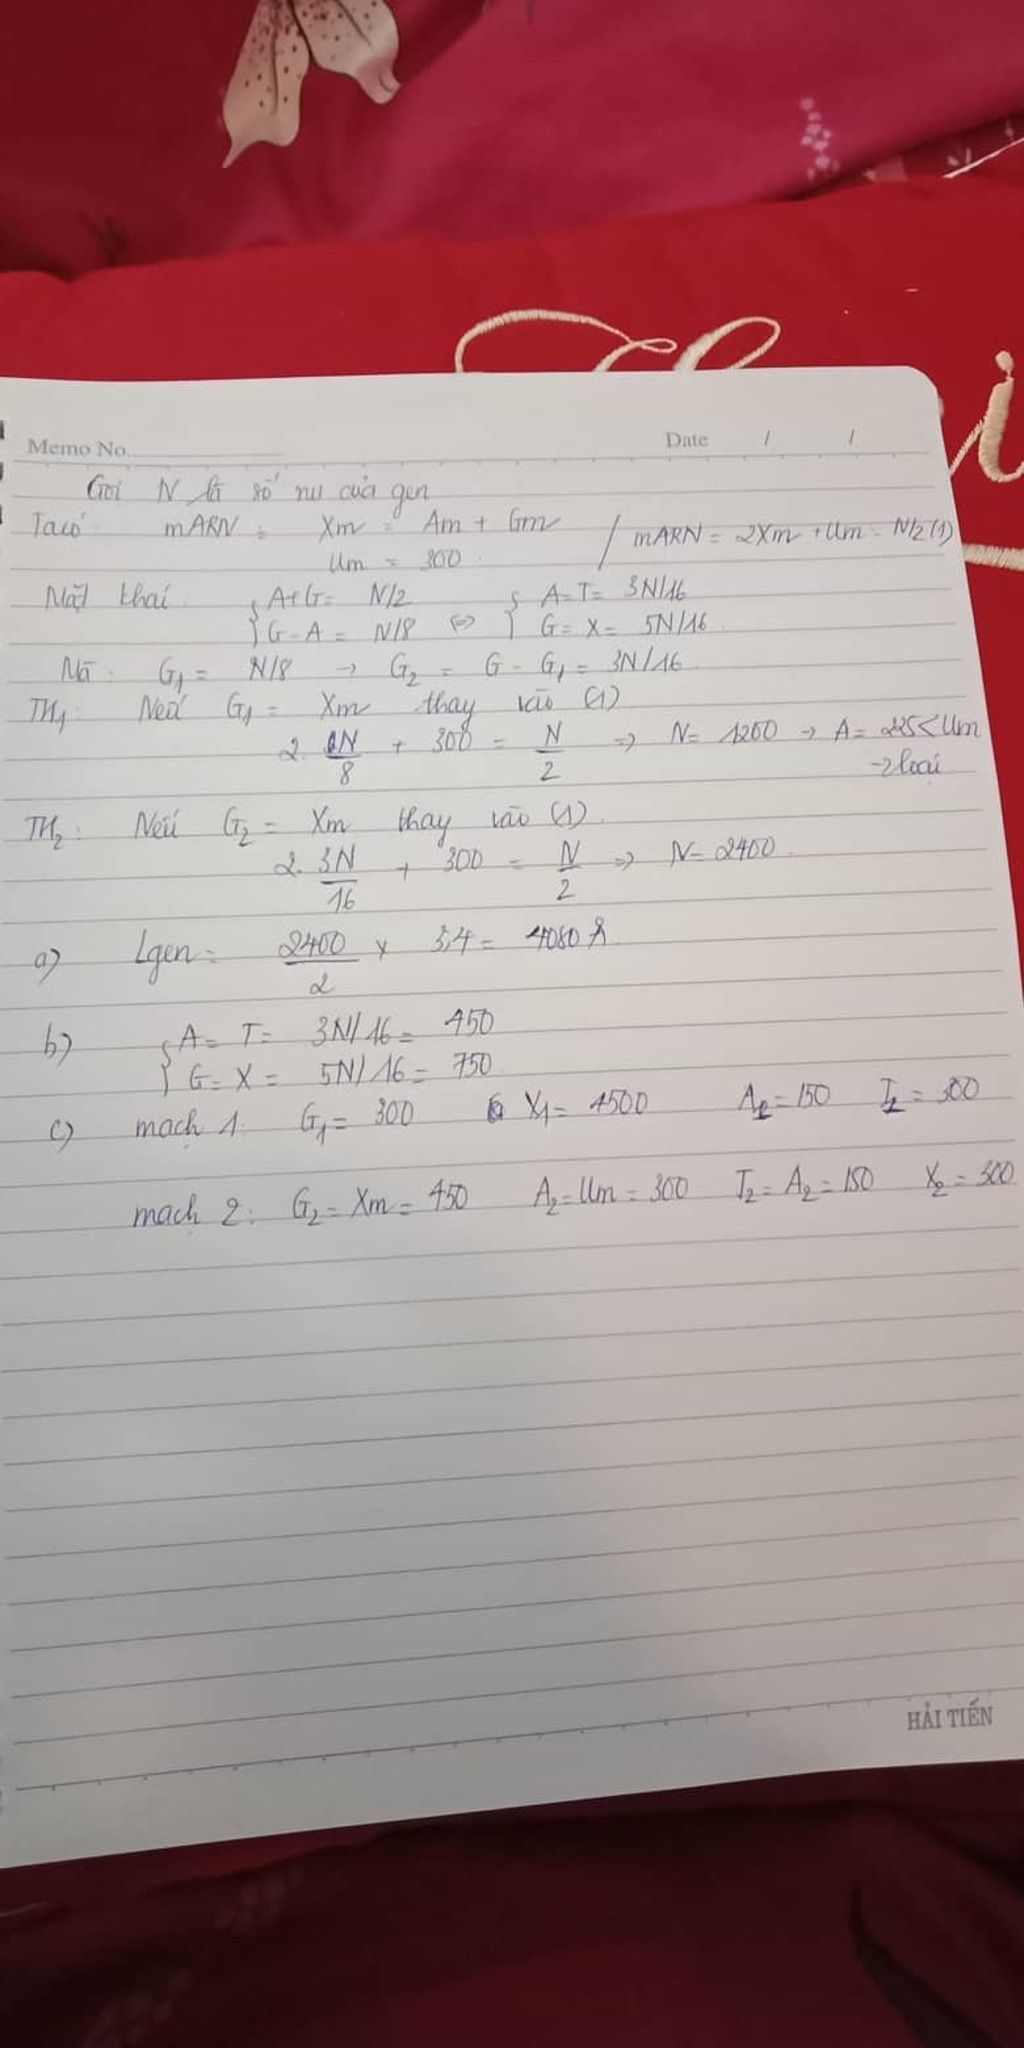 Memo No.
Date / /
Gọi N là số nu của gen
Ta có: mARN: Xm = Am + Gm / mARN = 2Xm + Um = N/2 (1)
Um = 300
Mặt khác: { A+G = N/2 { A=T= 3N/16
{ G-A = N/8 <=> { G=X= 5N/16
Mà: G1 = N/8 → G2 = G - G1 = 3N/16
TH1: Nếu G1 = Xm thay vào (1)
2. N/8 + 300 = N/2 => N= 1200 → A= 225 < Um
→ loại
TH2: Nếu G2 = Xm thay vào (1)
2. 3N/16 + 300 = N/2 => N= 2400
a) Lgen = 2400/2 x 3,4 = 4080 Å
b) { A= T= 3N/16 = 450
{ G= X = 5N/16 = 750
c) mạch 1: G1 = 300 X1 = 4500 A2 = 150 T2 = 300
mạch 2: G2 = Xm = 450 A2 = Um = 300 T2 = A2 = 150 X2 = 300
HẢI TIẾN